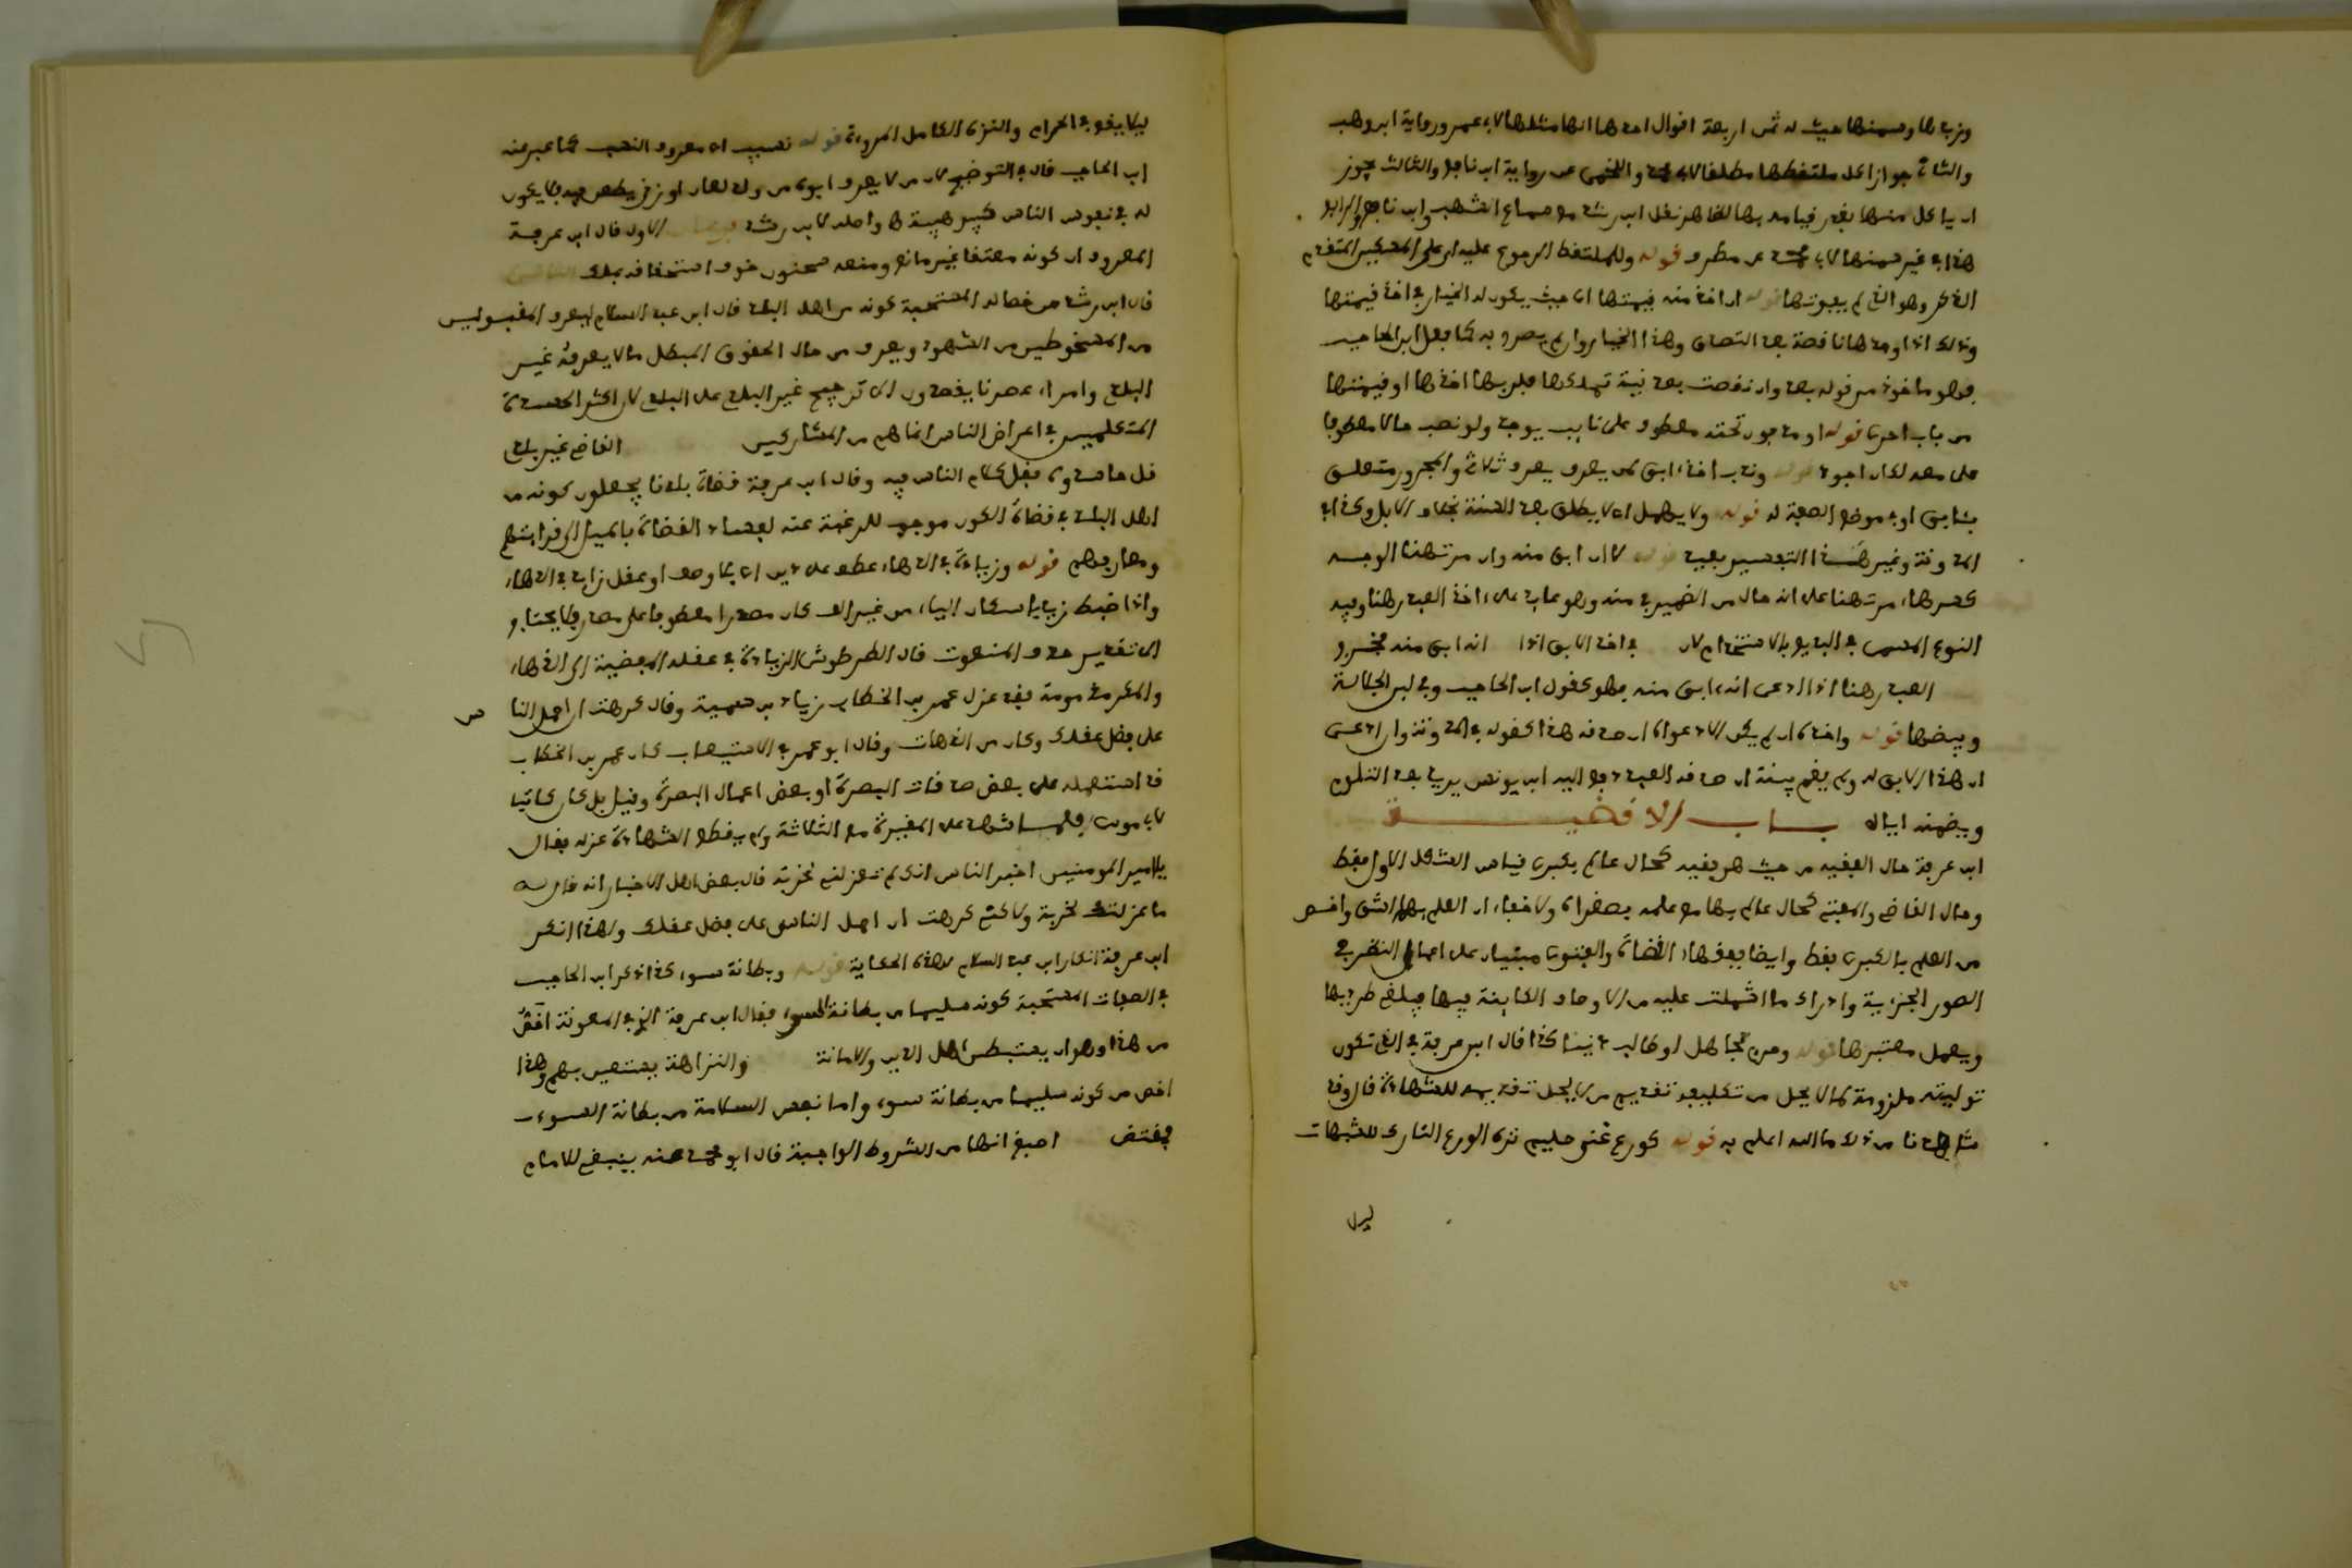 وزبدها وسمنها حيث له ثمن اربعة اقوال احدها انها مثلها لابي عمر ورواية ابن وهب
والثاني جواز اكل ملتقطها مطلقا لابي محمد واللخمي عن رواية ابن نافع والثالث يجوز
ان ياكل منها بقدر قيامه بها لظاهر نقل ابن رشد مع سماع اشهب وابن نافع والرابع
هذا في غير سمنها لابن محمد عن مطرف قوله وللملتقط الرجوع عليه ان على المسكين المتقدم
الذكر وهو الذي لم يعينها قوله ان اخذ منه قيمتها اي حيث يكون له الخيار في اخذ قيمتها
وذلك اذا وجدها ناقصة بعد التصدق وهذا الخيار وان لم يصرح به كما فعل ابن الحاجب
فهو ماخوذ من قوله بعد وان نقصت بعد نية تملكها فلربها اخذها او قيمتها
من باب احرى قوله او مد جون تحته معطوف على نايب يوجد ولو نصب حالا معطوفا
على معه لكان اجود قوله وندب اخذ ابق لمن يعرف يعرف ثلاثي والمجرور متعلق
بابق او في موضع الصفة له قوله ولا يهمل اي لا يطلق بعد السنة بخلاف الابل وكذا في
المدونة وغيرها التفسير بعيد قوله لا ان ابق منه وان مرتهنا الوجه
كسرها، مرتهنا على انه حال من الضمير في منه وهو عايد على اخذ العبد رهنا وفيه
النوع المسمى في البديع بالاستخدام لان في اخذ الابق اذا انه ابق منه فخبرو
العبد رهنا اذا ادعى انه ابق منه فهو كقول ابن الحاجب وفي لبن الجلالة
وبيضها قوله واخذه ان لم يكن الا دعواه ان صدقه هذا كقوله في المدونة وان ادعى
ان هذا الابق له ولم يقم بينة ان صدقه العبد دفع اليه ابن يونس يريد بعد التلوم
ويضمنه اياه باب الاقضية
ابن عرفة حال الفقيه من حيث هو فقيه كحال عالم بكبرى قياس الشكل الاول فقط
وحال القاضي والمفتي كحال عالم بها مع علمه بصغراه ولا خفاء ان العلم بهما اشق واخص
من العلم بالكبرى فقط وايضا فقها القضاة والفتوى مبنيان على اعمال النظر في
الصور الجزئية وادراك ما اشتملت عليه من الاوصاف الكاينة فيها فيلغي طرديها
ويعمل معتبرها قوله ومن تجاهل او طالب دنيا كذا قال ابن عرفة في الذي تكون
توليته ملزومة لما لا يحل من تكليفه تقديم من لا يحل تقديمه للشهادة قال وقد
شاهدنا من ذلك ما الله اعلم به قوله كورع غني حليم نزه الورع التارك للشبهات
ليلا
ليلا يقع في الحرام والنزه الكامل المروءة قوله نسيب اي معروف النسب كما عبر عنه
ابن الحاجب قال في التوضيح لان من لا يعرف ابوه من ولد لعان او زنى يطعن فيه فلا يكون
له في نفوس الناس كبير هيبة واصله لابن رشد الاول قال ابن عرفة
المعروف ان كونه معتقا غير مانع ومنعه سحنون خوف استحقاقه
قال ابن رشد من خصاله المستحبة كونه من اهل البلد قال ابن عبد السلام ليعرف المقبولين
من المسخوطين من الشهود ويعرف من حال المحق والمبطل ما لا يعرفه غير
البلدي وامراء عصرنا يقصدون الى ترجيح غير البلدي على البلدي لان اكثر الحسدة
المتكلمين في اعراض الناس انما هم من المشاركين القاضي غير بلدي
قل حاسدوه فقل كلام الناس فيه وقال ابن عرفة قضاة بلدنا يجعلون كونه من
اهل البلد في قضاة الكور موجب للرغبة عنه لفساد القضاة بالميل الى قرابتهم
ومعارفهم قوله وزيادة في الدهاء عطف على دين اي بلا وصف او عقل زايد في الدهاء
واذا ضبط زيد باسكان الياء من غير الف كان مصدرا معطوفا على مصدر فلا يحتاج
الى تقدير حذف المنعوت قال الطرطوشي الزيادة في عقله المفضية الى الدهاء
والمكر مذمومة فقد عزل عمر بن الخطاب زياد بن سمية وقال كرهت ان احمل النا
س
على فضل عقلك وكان من الدهات وقال ابو عمر في الاستيعاب كان عمر بن الخطاب
قد استعمله على بعض صدقات البصرة او بعض اعمال البصرة وقيل بل كان كاتبا
لابي موسى فلما شهد على المغيرة مع الثلاثة ولم يقطع الشهادة عزله فقال
يا امير المومنين اخبر الناس انك لم تعزلني لخزية قال بعض اهل الاخبار انه قال له
ما عزلتك لخزية ولاكني كرهت ان احمل الناس على فضل عقلك ولهذا انكر
ابن عرفة انكار ابن عبد السلام هذه الحكاية قوله وبطانة سوء كذا ذكر ابن الحاجب
في الصفات المستحبة كونه سليما من بطانة السوء فقال ابن عرفة الذي في المعونة اخص
من هذا وهو ان يستبطن اهل الدين والامانة والنزاهة يستعين بهم وهذا
اخص من كونه سليما من بطانة سوء واما نفس السلامة من بطانة السوء
فمقتضى اصبغ انها من الشروط الواجبة قال ابو محمد عنه ينبغي للامام